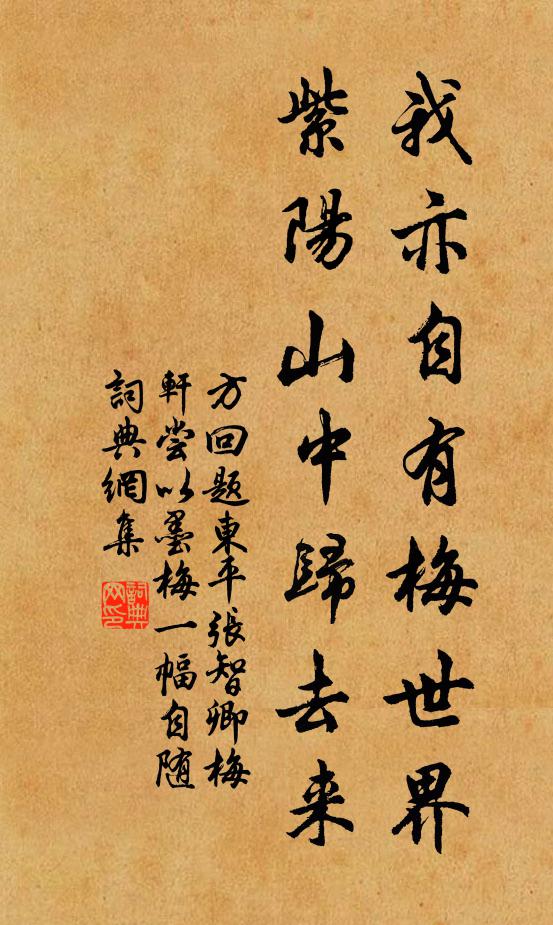 我亦自有梅世界
紫陽山中歸去来
方回題東平張智卿梅
軒嘗以墨梅一幅自随
詞典網集
詞典
网印